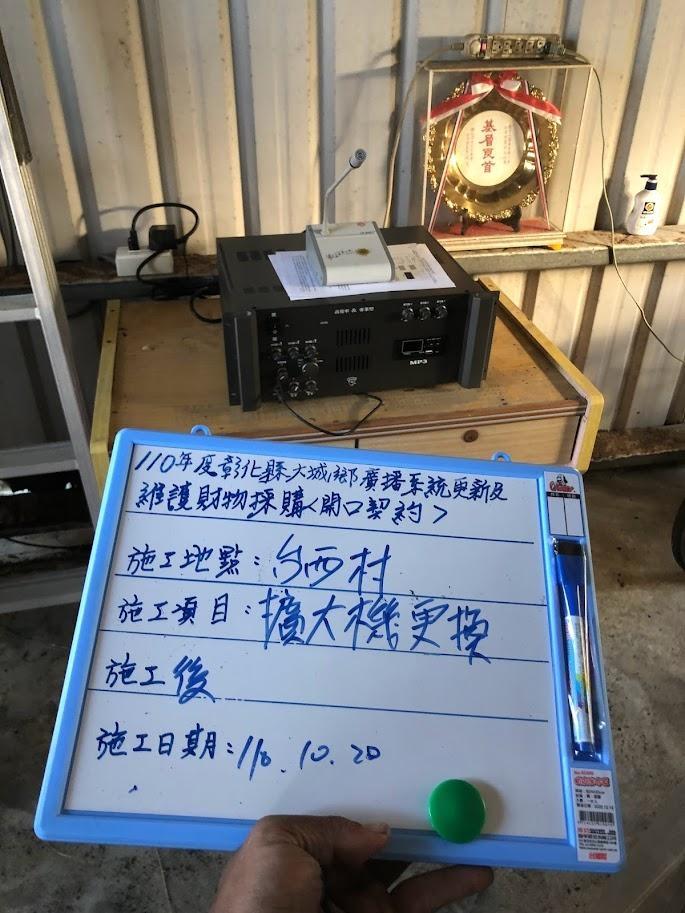 基層良首
MP3
110年度彰化縣大城鄉廣播系統更新及
維護財物採購<開口契約>
施工地點:台西村
施工項目:擴大機更換
施工後
施工日期:110.10.20